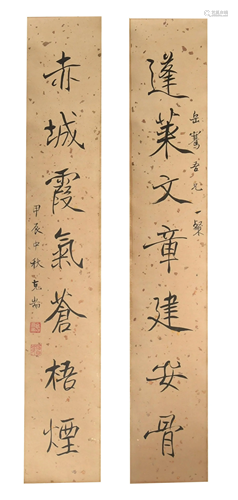 蓬萊文章建安骨
岳騫吾兄 一粲
赤城霞氣蒼梧煙
甲辰中秋